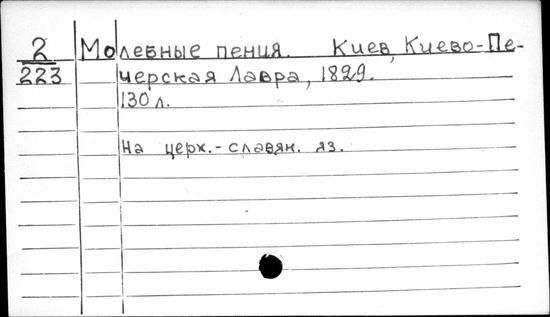 2 Молебные пения. Киев, Киево-Пе-
223 черская Лавра, 1829.
130 л.
На церк.-славян. яз.